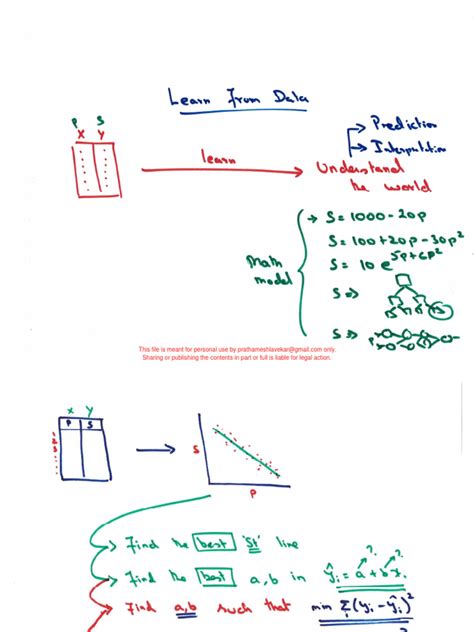 Learn From Data
P S
X Y
learn
→ Prediction
→ Interpretation
Understand
the world
Math
model
→ S = 1000 - 20p
S = 100 + 20p - 30p²
S = 10 e^5p+6p²
S ⇒
S ⇒
This file is meant for personal use by prathameshlavekar@gmail.com only.
Sharing or publishing the contents in part or full is liable for legal action.
X Y
P S
S
P
→ Find the best 'St' line
→ Find the best a, b in ŷᵢ = a + b xᵢ
? ?
→ Find a,b such that min Σ(yᵢ - ŷᵢ)²